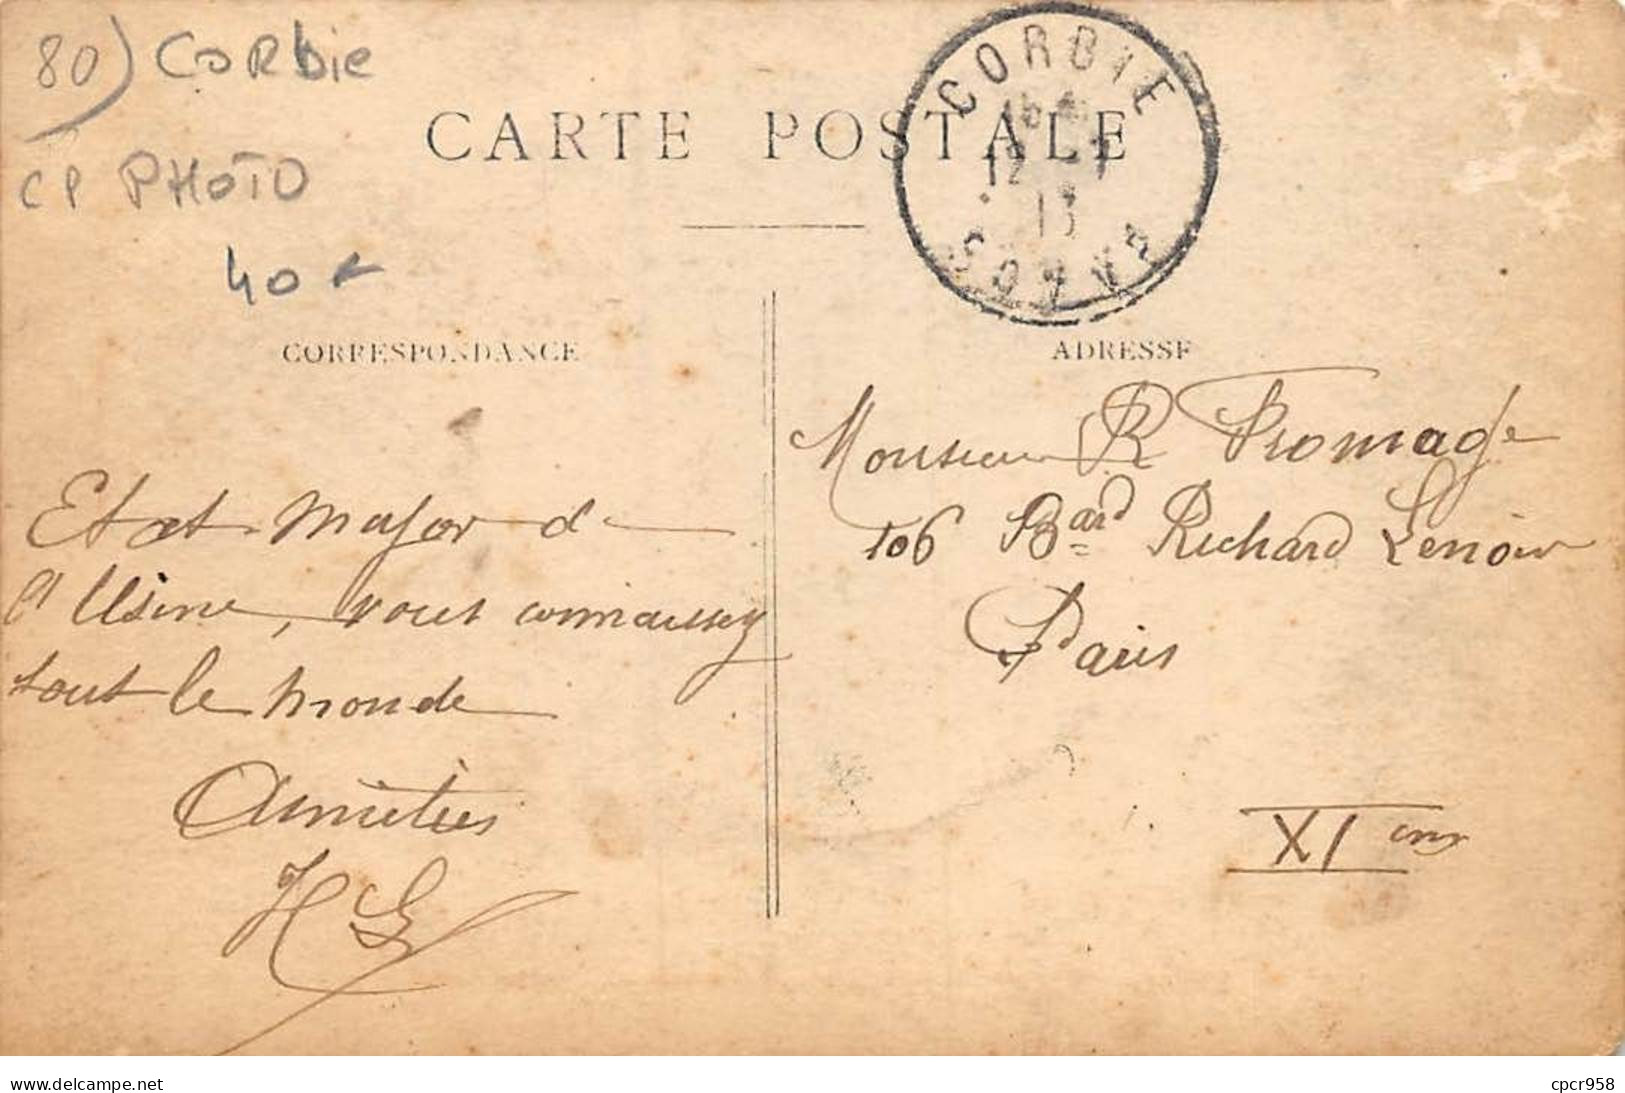 80) CORbie
CP PHOTO
40 €
CARTE POSTALE
CORBIE
12
13
SOMME
CORRESPONDANCE
ADRESSE
Etat-Major de
l'Usine, vous connaissez
tout le monde
Amitiés
HG
Monsieur R Fromage
106 Bard Richard Lenoir
Paris
XI eme
www.delcampe.net
cpcr958